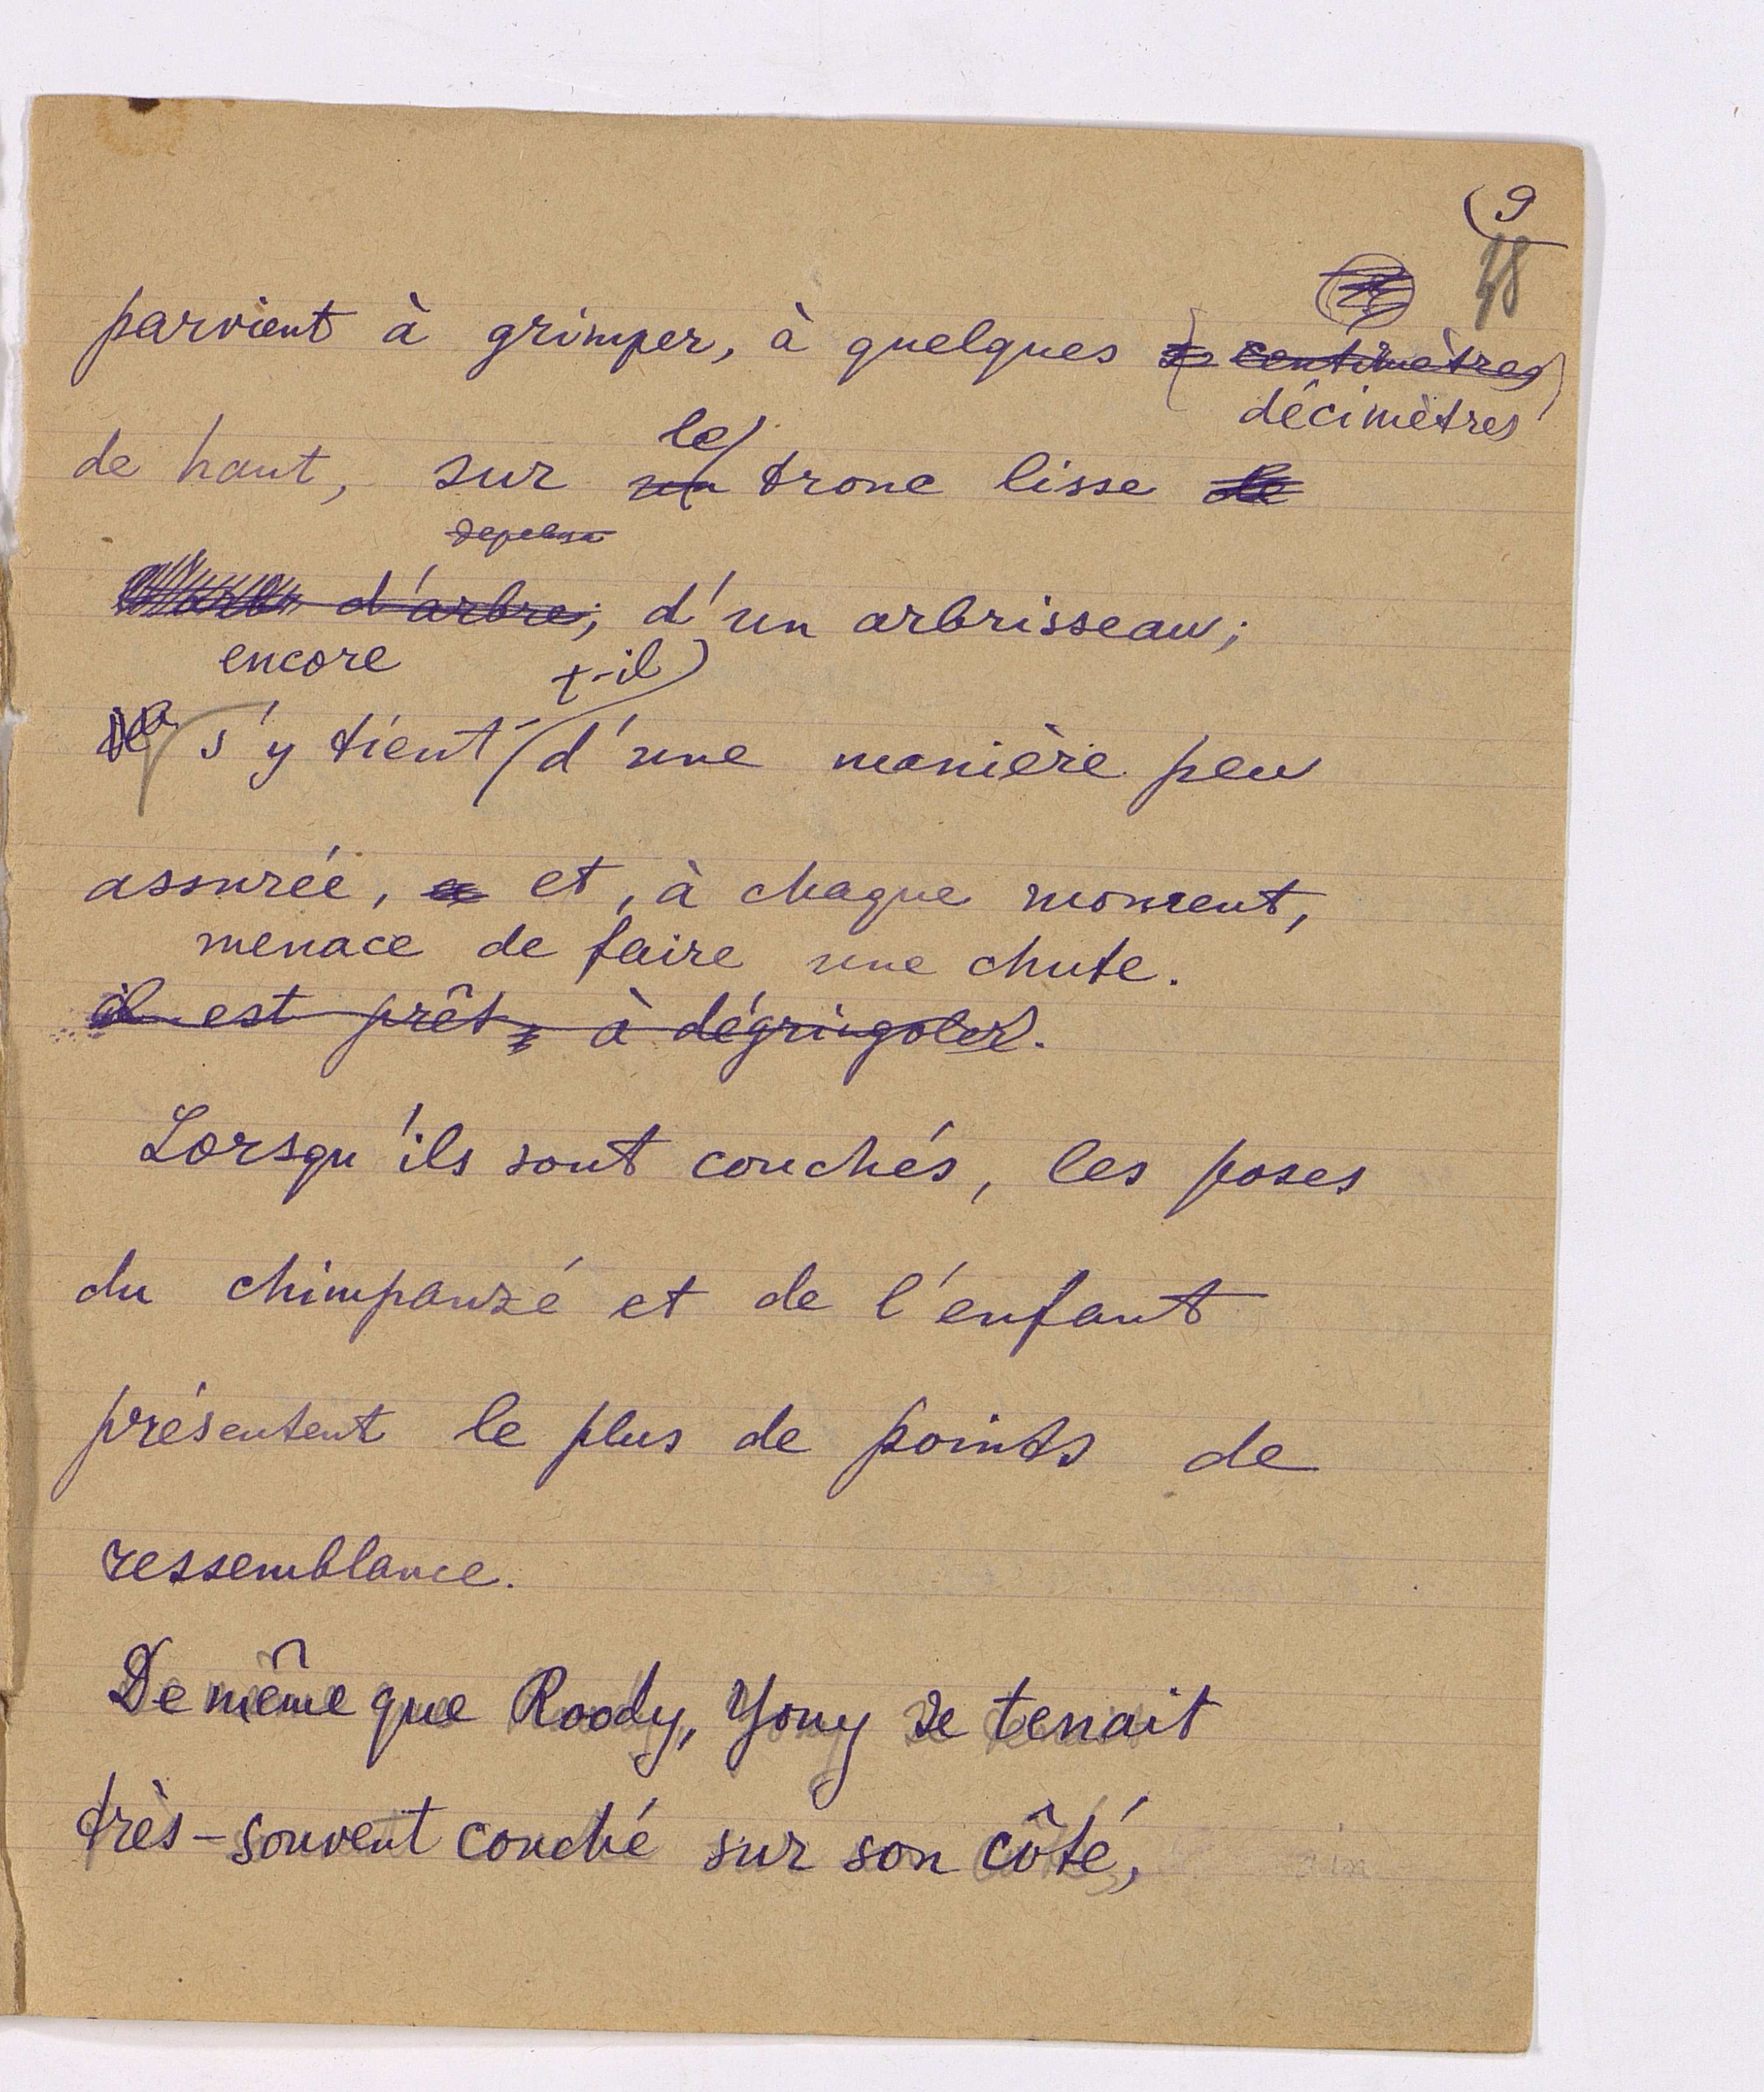 9
38
parvient à grimper, à quelques centimètres
décimètres
le
de haut, sur un tronc lisse de
d'arbre; d'un arbrisseau;
encore t-il
s'y tient- d'une manière peu
assurée, et, à chaque moment,
menace de faire une chute.
il est prêt à dégringoler.
Lorsqu'ils sont couchés, les poses
du chimpanzé et de l'enfant
présentent le plus de points de
ressemblance.
De même que Roody, Yony se tenait
très-souvent couché sur son côté,